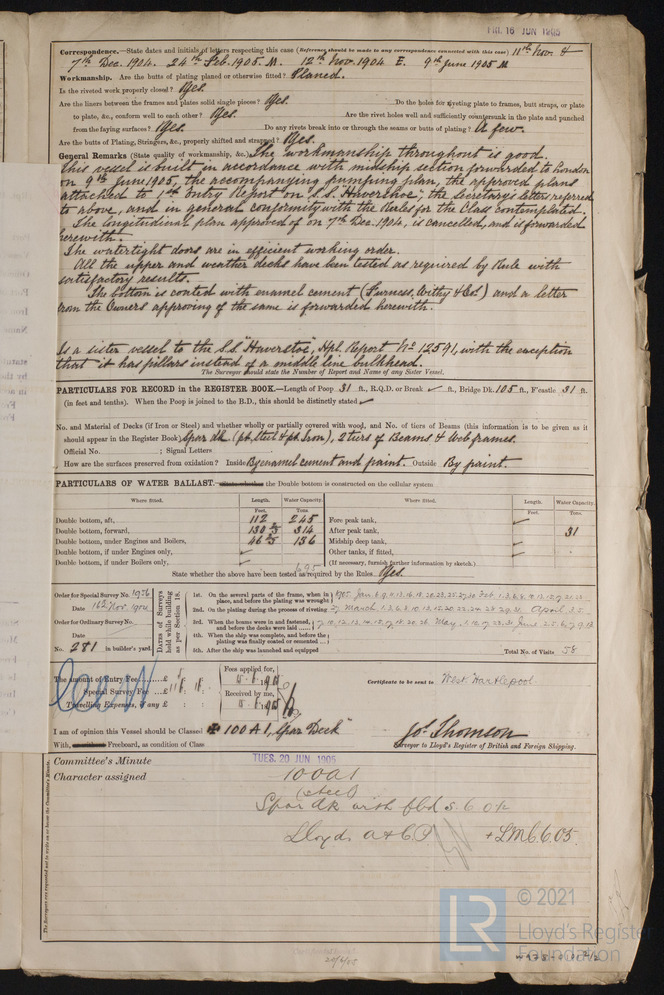 FRI. 16 JUN 1905
Correspondence.—State dates and initials of letters respecting this case (Reference should be made to any correspondence connected with this case) 11th Nov. &
7th Dec. 1904. 24th Feb. 1905. M. 12th Nov. 1904 E. 9th June 1905 M
Workmanship. Are the butts of plating planed or otherwise fitted? Planed.
Is the riveted work properly closed? Yes.
Are the liners between the frames and plates solid single pieces? Yes. Do the holes for riveting plate to frames, butt straps, or plate
to plate, &c., conform well to each other? Yes. Are the rivet holes well and sufficiently countersunk in the plate and punched
from the faying surfaces? Yes. Do any rivets break into or through the seams or butts of plating? A few.
Are the butts of Plating, Stringers, &c., properly shifted and strapped? Yes.
General Remarks (State quality of workmanship, &c.) The workmanship throughout is good.
This vessel is built in accordance with midship section forwarded to London
on 9th June 1905, the accompanying pumping plan, the approved plans
attached to 1st Entry Report on S.S. "Haverstoe", the Secretary's letters referred
to above, and in general conformity with the Rules for the Class contemplated.
The longitudinal plan approved of on 7th Dec. 1904, is cancelled, and is forwarded
herewith.
The watertight doors are in efficient working order.
All the upper and weather decks have been tested as required by Rule with
satisfactory results.
The bottom is coated with enamel cement (Furness, Withy & Co's.) and a letter
from the Owners approving of the same is forwarded herewith.
Is a sister vessel to the S.S. "Haverstoe", Hpl. Report No 12591, with the exception
that it has pillars instead of a middle line bulkhead.
The Surveyor should state the Number of Report and Name of any Sister Vessel.
PARTICULARS FOR RECORD in the REGISTER BOOK.—Length of Poop 31 ft., R.Q.D. or Break ✓ ft., Bridge Dk. 105 ft., F'castle 31 ft.
(in feet and tenths). When the Poop is joined to the B.D., this should be distinctly stated ✓
No. and Material of Decks (if Iron or Steel) and whether wholly or partially covered with wood, and No. of tiers of Beams (this information is to be given as it
should appear in the Register Book) Spar dk (pt. Steel & pt. Iron), 2 tiers of Beams & Web frames.
Official No. ; Signal Letters
How are the surfaces preserved from oxidation? Inside By enamel cement and paint. Outside By paint.
PARTICULARS OF WATER BALLAST.—State whether the Double bottom is constructed on the cellular system
Where fitted. Length. Water Capacity. Where fitted. Length. Water Capacity.
Feet. Tons. Feet. Tons.
Double bottom, aft, 112 245 Fore peak tank, ✓
Double bottom, forward, 130 2/3 314 After peak tank, 31
Double bottom, under Engines and Boilers, 46 2/3 136 Midship deep tank, ✓
Double bottom, if under Engines only, ✓ Other tanks, if fitted, ✓
Double bottom, if under Boilers only, ✓ (If necessary, furnish further information by sketch.)
695
State whether the above have been tested as required by the Rules Yes.
Order for Special Survey No. 1936
Date 16th Nov. 1904
Order for Ordinary Survey No.
Date
No. 281 in builder's yard.
Dates of Surveys held while building as per Section 18.
1st. On the several parts of the frame, when in place, and before the plating was wrought
2nd. On the plating during the process of riveting
3rd. When the beams were in and fastened, and before the decks were laid
4th. When the ship was complete, and before the plating was finally coated or cemented
5th. After the ship was launched and equipped
Total No. of Visits 58
The Amount of Entry Fee £
Special Survey Fee £
Travelling Expenses, if any £
Fees applied for,
Received by me,
Certificate to be sent to West Hartlepool
I am of opinion this Vessel should be Classed 100 A 1, "Spar Deck"
With, without Freeboard, as condition of Class
Jos. Thomson
Surveyor to Lloyd's Register of British and Foreign Shipping.
Committee's Minute TUES. 20 JUN 1905
Character assigned 100A1
(steel)
Spar dk with fbd
Lloyds A & C P + LMC 6.05.
The Surveyors are requested not to write on or below the Committee's Minute.
LR
© 2021
Lloyd's Register
Foundation